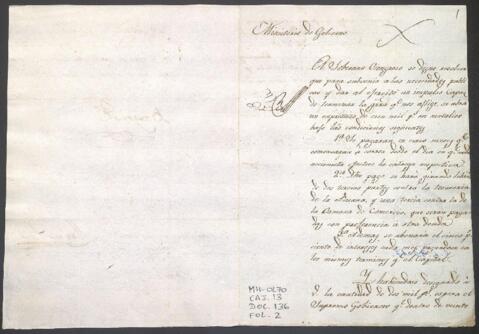 1
Ministerio de Gobierno
El Soberano Congreso se digno resolver
que para subvenir a las necesidades publi
cas y dar al exercito un impulso capaz
de terminar la gũra q.e nos aflige, se abra
un emprestito de cien mil p.s en metalico
bajo las condiciones siguientes
1.a Se pagaran en cinco meses q.e
comenzaran a correr desde el dia en q.e
accionista efectue la entrega respectiva
2.a Este pago se hará girando libra
de dos terceras partes contra la tesoreria
de la aduana, y una tercia contra la de
la Camara de Comercio, que seran paga
das con preferencia a otra deuda
3.a Ademas se abonaran el cinco p.r
ciento de intereses cada mes
los mismos terminos q.e el Capital
Y habiendose designado a
U. la cantidad de dos mil p.s espera el
Supremo Gobierno q.e dentro de veinte
MH-0270
CAJ. 13
DOC. 136
FOL. 2